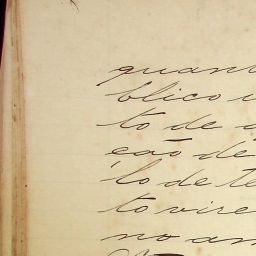 quan
blico
to de
ção de
lo de te
to vire
no an